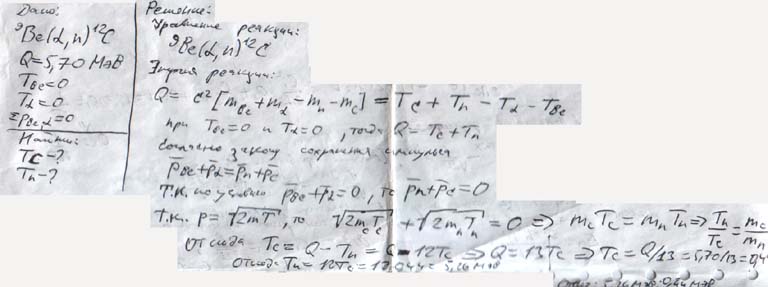 Дано:
⁹Be(α, n)¹²C
Q = 5,70 МэВ
T_Be = 0
T_α = 0
Σp_Be,α = 0
Найти:
T_C - ?
T_n - ?
Решение:
Уравнение реакции:
⁹Be(α, n)¹²C
Энергия реакции:
Q = c²[m_Be + m_α - m_n - m_C] = T_C + T_n - T_α - T_Be
при T_Be = 0 и T_α = 0, тогда Q = T_C + T_n
Согласно закону сохранения импульса
p̄_Be + p̄_α = p̄_n + p̄_C
Т.к. по условию p̄_Be + p̄_α = 0, то p̄_n + p̄_C = 0
т.к. p = √2mT, то √2m_C T_C + √2m_n T_n = 0 ⇒ m_C T_C = m_n T_n ⇒ T_n/T_C = m_C/m_n
Отсюда T_C = Q - T_n = Q - 12T_C ⇒ Q = 13T_C ⇒ T_C = Q/13 = 5,70/13 = 0,4
Отсюда T_n = 12T_C = 12·0,44 = 5,26 МэВ
Ответ: 5,26 МэВ; 0,44 МэВ